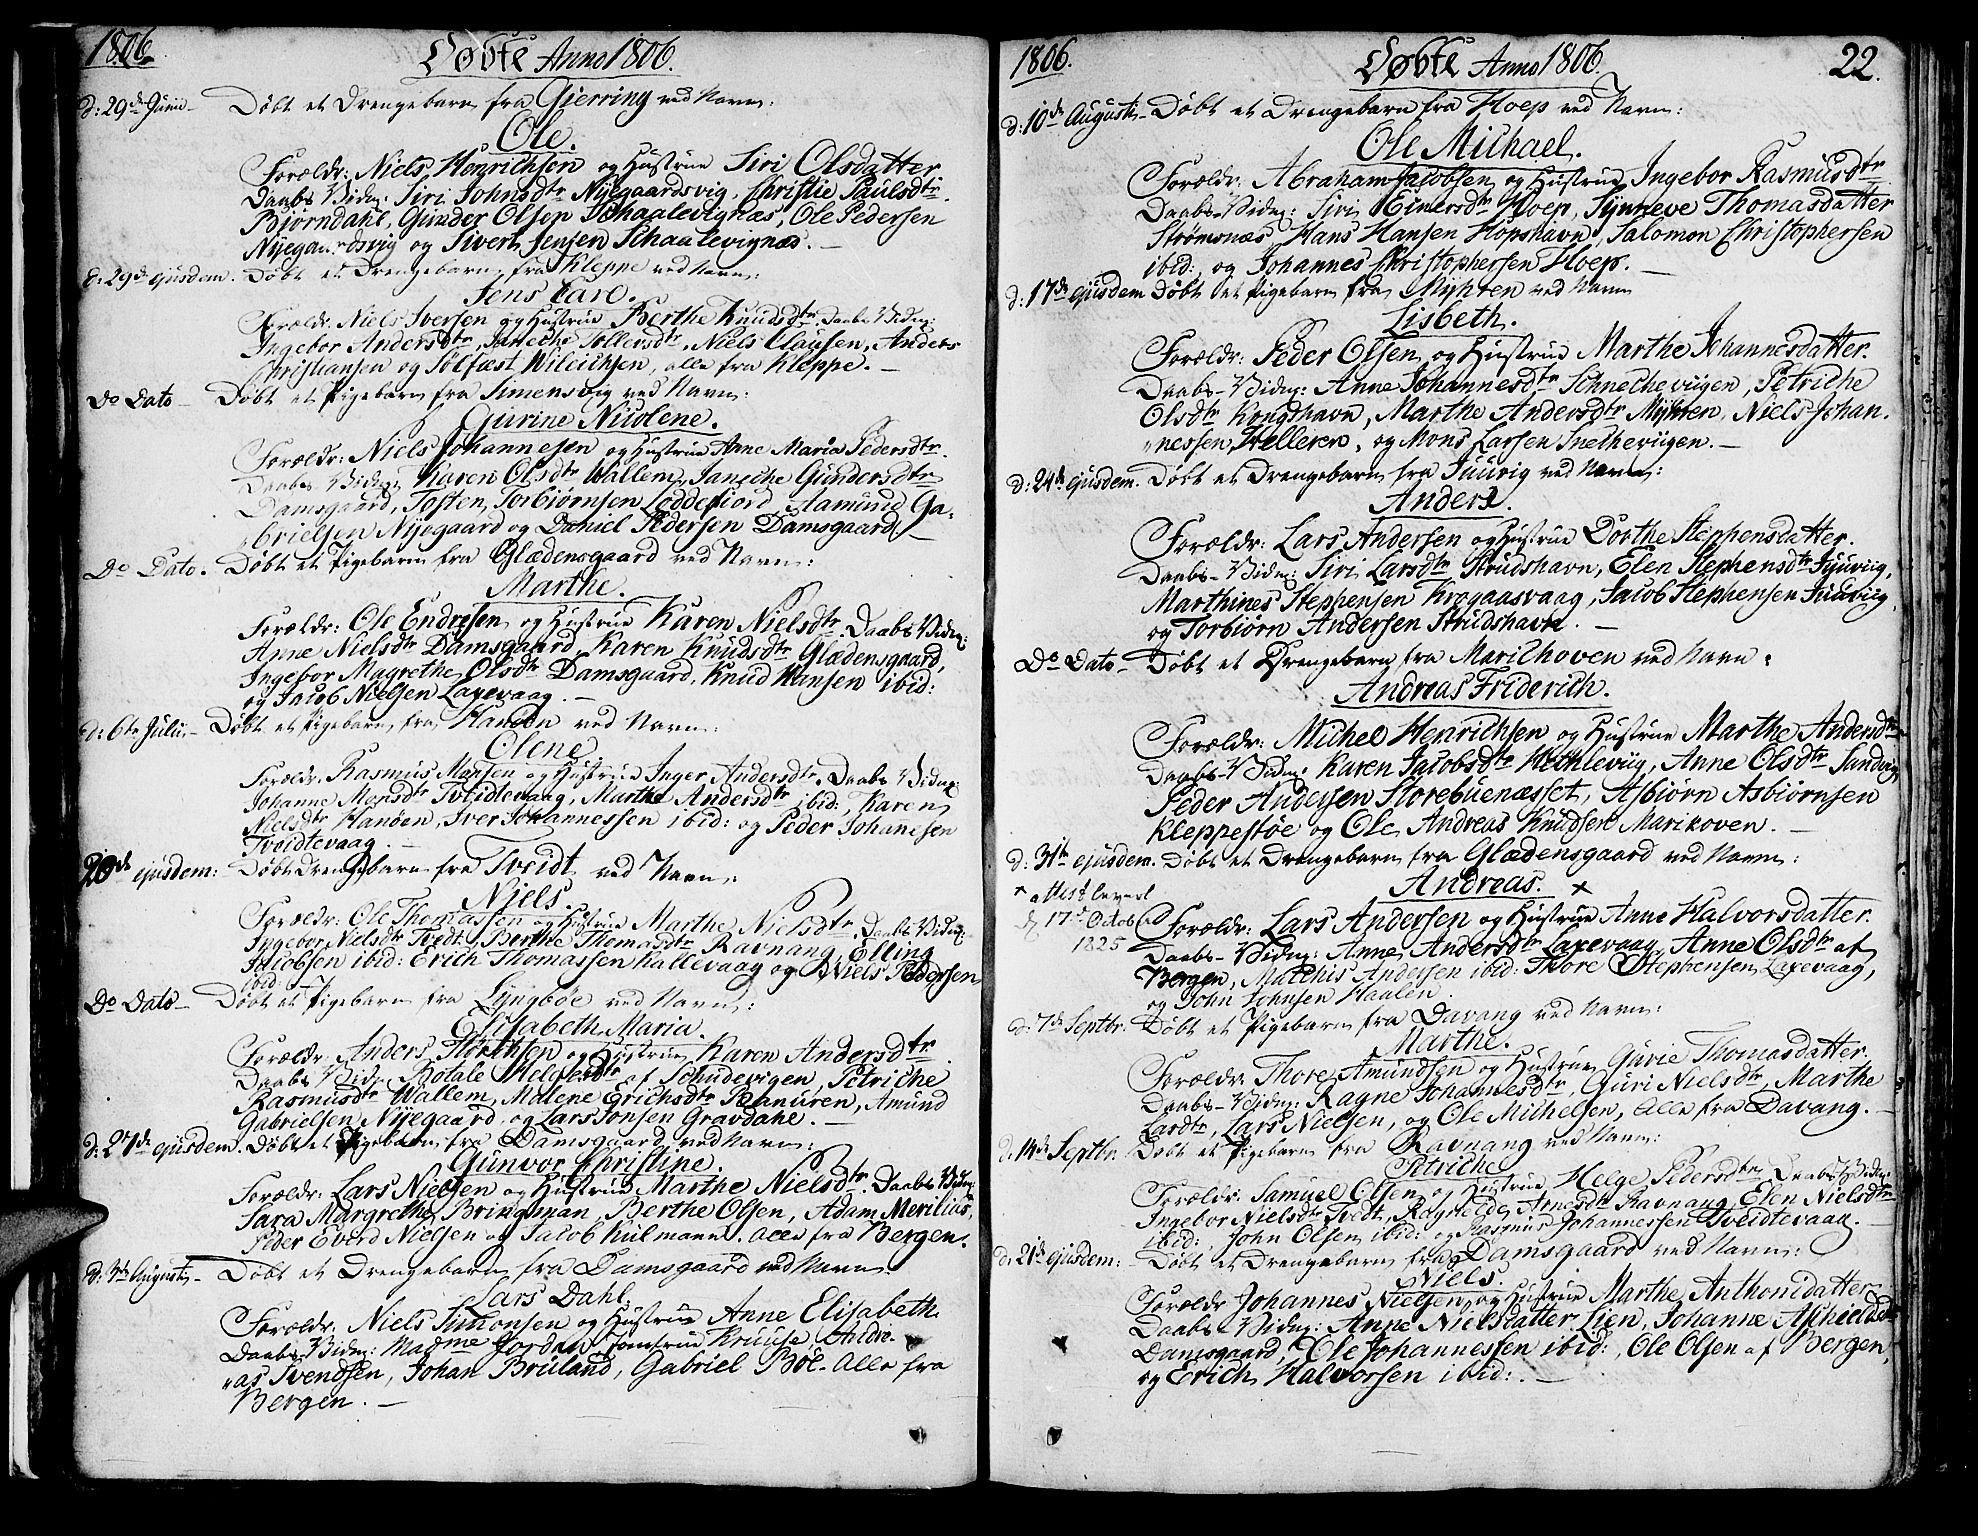 1806.
Døbte Anno 1806.
d: 29de Junii – Døbt et Drengebarn fra Gierring ved Navn:
Ole.
Forældr: Niels Henrichsen og Hustrue Siri Olsdatter
Daabs-Vidn: Siri Johnsdtr Nyegaardsvig, Christie Paulsdtr
Biørndahl, Gunder Olsen Schaalevignæs, Ole Pedersen
Nyegaardsvig og Sivert Jensen Schaalevignæs. –
d: 29de ejusdem. Døbt et Drengebarn fra Kleppe ved Navn:
Jens Carl.
Forældr: Niels Iversen og Hustrue Berthe Knudsdtr Daabs Vidn:
Ingebor Andersdtr, Janeche Tollersdtr, Niels Clausen, Anders
Christiansen og Sølfæst Willichsen, alle fra Kleppe. –
Do Dato – Døbt et Pigebarn fra Simensvig ved Navn:
Gurine Nicolene.
Forældr: Niels Johannesen og Hustrue Anne Maria Pedersdtr.
Daabs Vidn: Karen Olsdtr Wallem, Janiche Gundersdtr
Damsgaard, Tosten Torbiørnsen Loddefiord, Aamund Ga-
brielsen Nyegaard og Daniel Pedersen Damsgaard –
Do Dato. Døbt et Pigebarn fra Glædensgaard ved Navn:
Marthe.
Forældr: Ole Endresen og Hustrue Karen Nielsdtr. Daabs Vidn:
Anne Nielsdtr Damsgaard, Karen Knudsdtr Glædensgaard,
Ingebor Magrethe Olsdtr Damsgaard, Knud Hansen ibid:
og Jacob Nielsen Laxevaag. –
d: 6te Julii – Døbt et Pigebarn fra Hanøen ved Navn:
Olene
Forældr: Rasmus Monsen og Hustrue Inger Andersdtr. Daabs Vidn:
Johanne Monsdtr Tveidtevaag, Marthe Andersdtr ibid:, Karen
Nielsdtr Hanøen, Iver Johannessen ibid: og Peder Johannesen
Tveidtevaag. –
20de ejusdem: Døbt Drengebarn fra Tveidt ved Navn:
Niels.
Forældr: Ole Thomassen og Hustrue Marthe Nielsdtr. Daabs Vidn:
Ingebor Nielsdtr Tvedt, Berthe Thomasdtr Ravnang, Elling
Jacobsen ibid: Erich Thomassen Kallevaag og Niels Pedersen
ibid: –
Do Dato – Døbt et Pigebarn fra Lyngbøe ved Navn:
Elisabeth Maria.
Forældr: Anders Størchsen og Hustrue Karen Andersdtr.
Daabs Vidn: Botale Helgesdtr af Schudevigen, Petriche
Rasmusdtr Wallem, Malene Erichsdtr Ramuren, Amund
Gabrielsen Nyegaard, og Lars Jonsen Gravdahl. –
d: 27de ejusdem. Døbt et Pigebarn fra Damsgaard ved Navn:
Gunvor Christine.
Forældr: Lars Nielsen og Hustrue Marthe Nielsdtr. Daabs Vidn:
Sara Margrethe Bringman, Berthe Olsen, Adam Merilius,
Peder Everd Nielsen og Jacob Kulmann. Alle fra Bergen.
d: 3de Augusti – Døbt et Drengebarn fra Damsgaard ved Navn:
Lars Dahl.
Forældr: Niels Simonsen og Hustrue Anne Elisabeth.
Daabs Vidn: Madme Jordan, Jomfrue Kruuse, Andre-
as Svendsen, Johan Bruland, Gabriel Bøe. Alle fra
Bergen. –
1806.
Døbte Anno 1806.
22.
d: 10de Augusti – Døbt et Drengebarn fra Hoep ved Navn:
Ole Michael.
Forældr: Abraham Jacobsen og Hustrue Ingebor Rasmusdtr
Daabs-Vidn: Siri Einersdtr Hoep, Synneve Thomasdatter
Strømsnæs, Hans Hansen Hopshavn, Salomon Christophersen
ibid: og Johannes Christophersen Hoep. –
d: 17de ejusdem Døbt et Pigebarn fra Myhren ved Navn
Lisbeth.
Forældr: Peder Olsen og Hustrue Marthe Johannesdatter.
Daabs-Vidn: Anne Johannesdtr Schnecheviigen, Petriche
Olsdtr Kongshavn, Marthe Andersdtr Myhren, Niels Johan-
nessen Helleren, og Mons Larsen Snecheviigen. –
d: 24de ejusdem. Døbt et Drengebarn fra Juuvig ved Navn:
Anders.
Forældr: Lars Andersen og Hustrue Dorthe Stephensdatter.
Daabs-Vidn: Siri Larsdtr Strudshavn, Elen Stephensdtr Juuviig,
Marthines Stephensen Krogaasvaag, Jacob Stephensen Juuviig,
og Torbiørn Andersen Strudshavn. –
Do Dato – Døbt et Drengebarn fra Marichoven ved Navn:
Andreas Friderich.
Forældr: Michel Henrichsen og Hustrue Marthe Andersdtr
Daabs-Vidn: Karen Jacobsdtr Hechleviig, Anne Olsdtr Sandvig
Peder Andersen Storebuenæsset, Asbiørn Asbiørnsen
Kleppestøe og Ole Andreas Knudsen Marikoven. –
d: 31te ejusdem. Døbt et Drengebarn fra Glædensgaard ved Navn:
× attest leveret
d 17de Octob
1825
Andreas. ×
Forældr: Lars Andersen og Hustrue Anne Halvorsdatter.
Daabs-Vidn: Anne Andersdtr Laxevaag, Anne Olsdtr af
Bergen, Matthis Andersen ibid: Thore Stephensen Laxevaag,
og John Johnsen Haalen
d: 7de Septbr. Døbt et Pigebarn fra Davang ved Navn:
Marthe.
Forældr: Thore Amundsen og Hustrue Gurie Thomasdatter.
Daabs-Vidn: Ragne Johannesdtr, Guri Nielsdtr, Marthe
Larsdtr, Lars Nielsen, og Ole Michelsen, alle fra Davang. –
d: 14de Septbr. Døbt et Pigebarn fra Ravnang ved Navn:
Petriche
Forældr: Samuel Olsen og Hustrue Helge Pedersdtr Daabs Vidn:
Ingebor Nielsdtr Tvedt, Ragnilde Arnesdtr Ravnang, Elen Nielsdtr
ibid:, John Olsen ibid: og Rasmus Johannessen Tveidtevaag.
d: 21de ejusdem: – Døbt et Drengebarn fra Damsgaard ved Navn:
Niels.
Forældr Johannes Nielsen og Hustrue Marthe Anthonidatter
Daabs-Vidn: Anne Nielsdatter Lien, Johanne Aschieldsdtr
Damsgaard, Ole Johannessen ibid:, Ole Olsen af Bergen,
og Erich Halvorsen ibid:. –